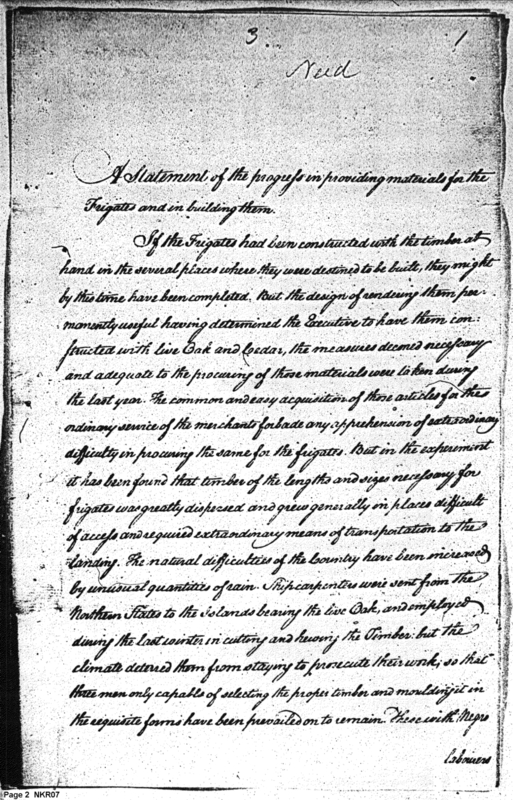 3 1
Need
A Statement of the progress in providing materials for the
Frigates and in building them.
If the Frigates had been constructed with the timber at
hand in the several places where they were destined to be built, they might
by this time have been completed. But the design of rendering them per-
manently useful having determined the Executive to have them con:
structed with live Oak and Cedar, the measures deemed necessary
and adequate to the procuring of those materials were taken during
the last year. The common and easy acquisition of those articles for the
ordinary service of the merchants forbade any apprehension of extraordinary
difficulty in procuring the same for the frigates. But in the experiment
it has been found that timber of the lengths and sizes necessary for
frigates was greatly dispersed and grew generally in places difficult
of access and required extraordinary means of transportation to the
Landing. The natural difficulties of the Country have been increased
by unusual quantities of rain. Shipcarpenters were sent from the
Northern States to the Islands bearing the live Oak, and employed
during the last winter in cutting and hewing the Timber: but the
climate deterred them from staying to prosecute their work, so that
three men only capable of selecting the proper timber and moulding it in
the requisite forms have been prevailed on to remain. These with Negro
labourers
Page 2 NKR07